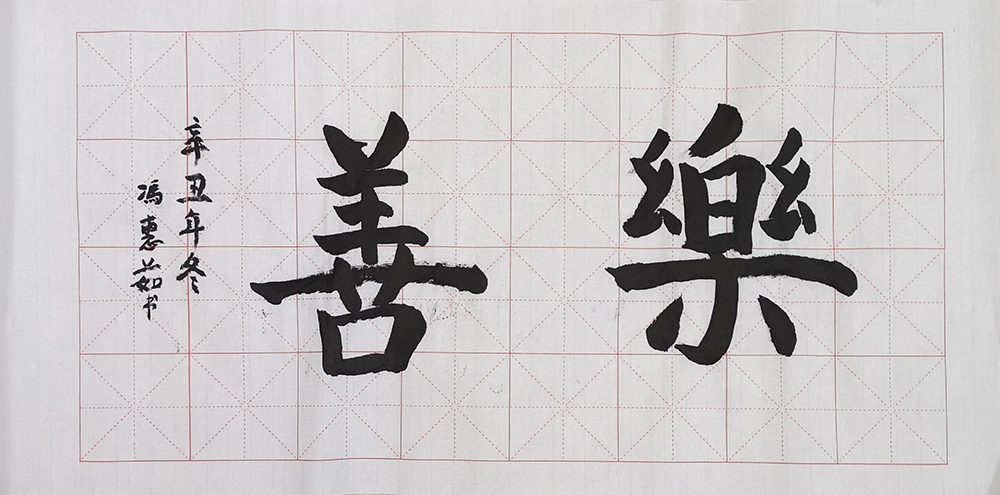 樂善
辛丑年冬
馮惠茹书